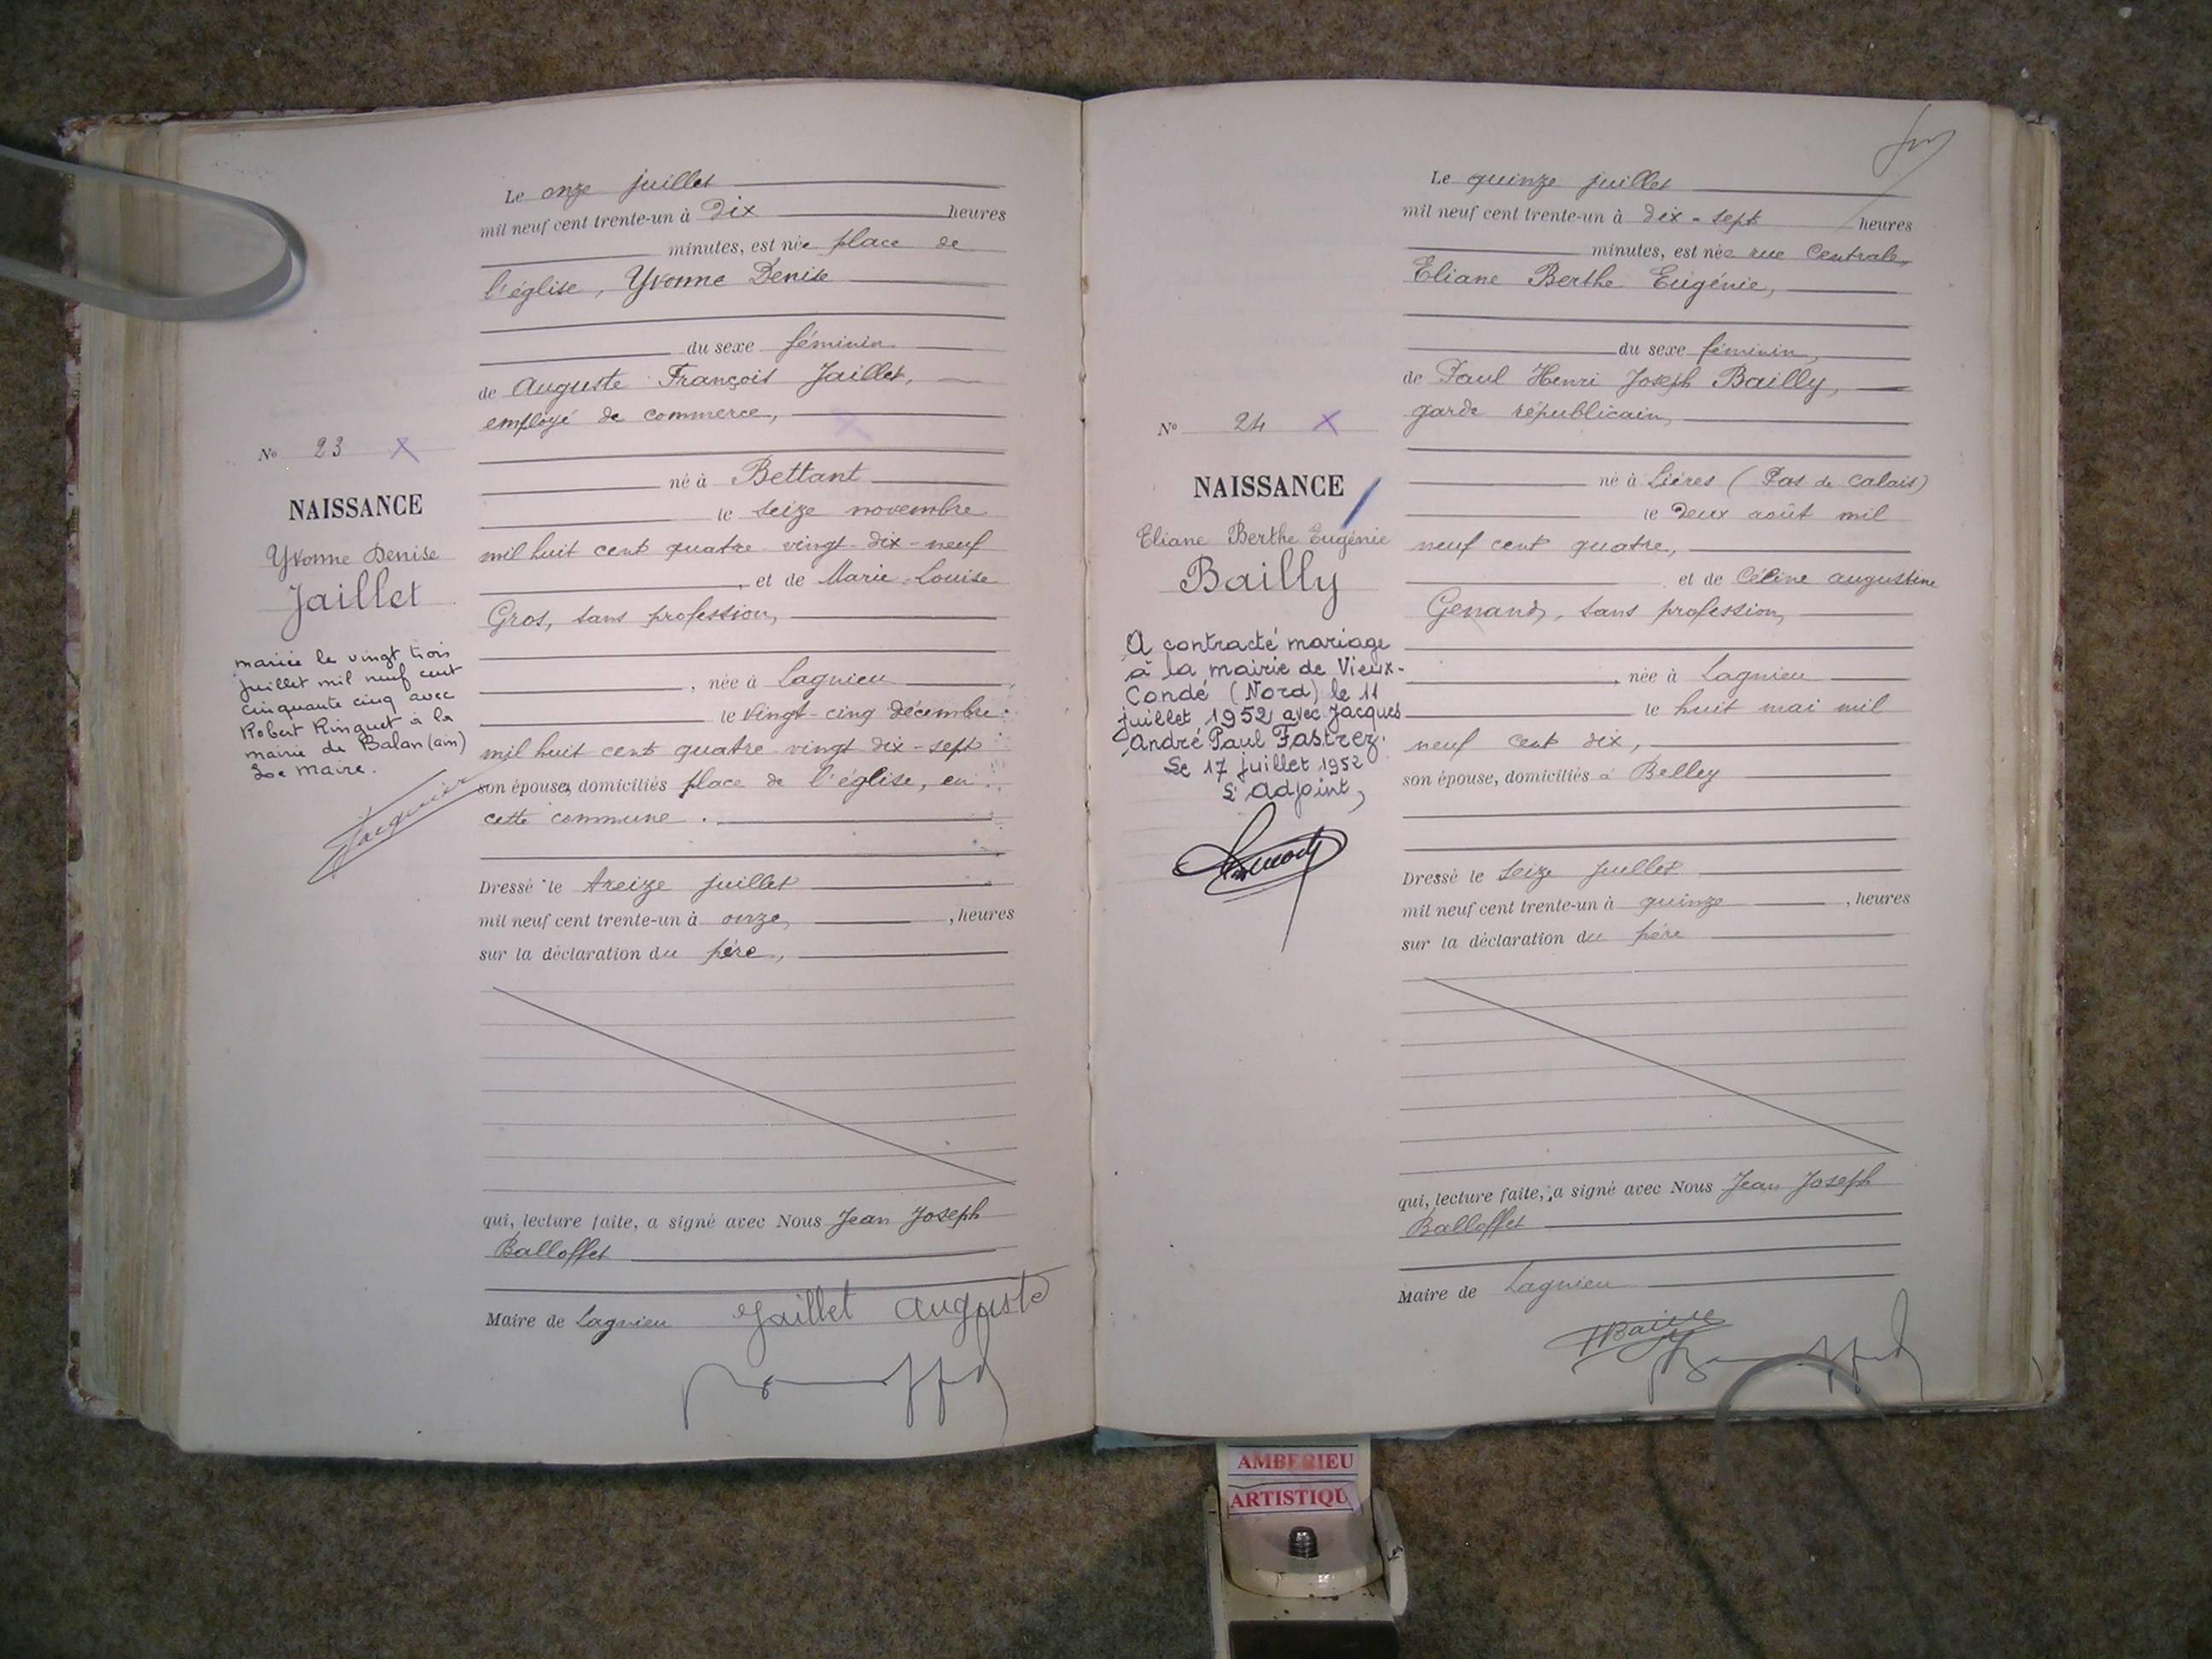 Le onze juillet
mil neuf cent trente-un à dix heures
minutes, est née place de
l'église, Yvonne Denise
du sexe féminin
de Auguste François Jaillet,
employé de commerce,
né à Bettant
le seize novembre
mil huit cent quatre-vingt-dix-neuf
, et de Marie-Louise
Gros, sans profession,
, née à Lagnieu
le vingt-cinq décembre
mil huit cent quatre-vingt dix-sept
son épouse, domiciliés place de l'église, en
cette commune.
Dressé le treize juillet
mil neuf cent trente-un à onze, , heures
sur la déclaration du père,
qui, lecture faite, a signé avec Nous Jean Joseph
Balloffet
Maire de Lagnieu Jaillet Auguste
No 23 X
NAISSANCE
Yvonne Denise
Jaillet
mariée le vingt trois
juillet mil neuf cent
cinquante cinq avec
Robert Ringuet à la
mairie de Balan (ain)
Le Maire.
Le quinze juillet
mil neuf cent trente-un à dix-sept heures
minutes, est née rue Centrale,
Eliane Berthe Eugénie,
du sexe féminin,
de Paul Henri Joseph Bailly,
garde républicain,
né à Lières (Pas de Calais)
le deux août mil
neuf cent quatre,
et de Céline Augustine
Genand, sans profession,
, née à Lagnieu
le huit mai mil
neuf cent dix,
son épouse, domiciliés à Belley
Dressé le seize juillet
mil neuf cent trente-un à quinze , heures
sur la déclaration du père
qui, lecture faite, a signé avec Nous Jean Joseph
Balloffet
Maire de Lagnieu
No 24 X
NAISSANCE
Eliane Berthe Eugénie
Bailly
A contracté mariage
à la mairie de Vieux-
Condé (Nord) le 11
juillet 1952 avec Jacques
André Paul Fastrez.
Le 17 juillet 1952
L'Adjoint,
AMBERIEU
ARTISTIQU